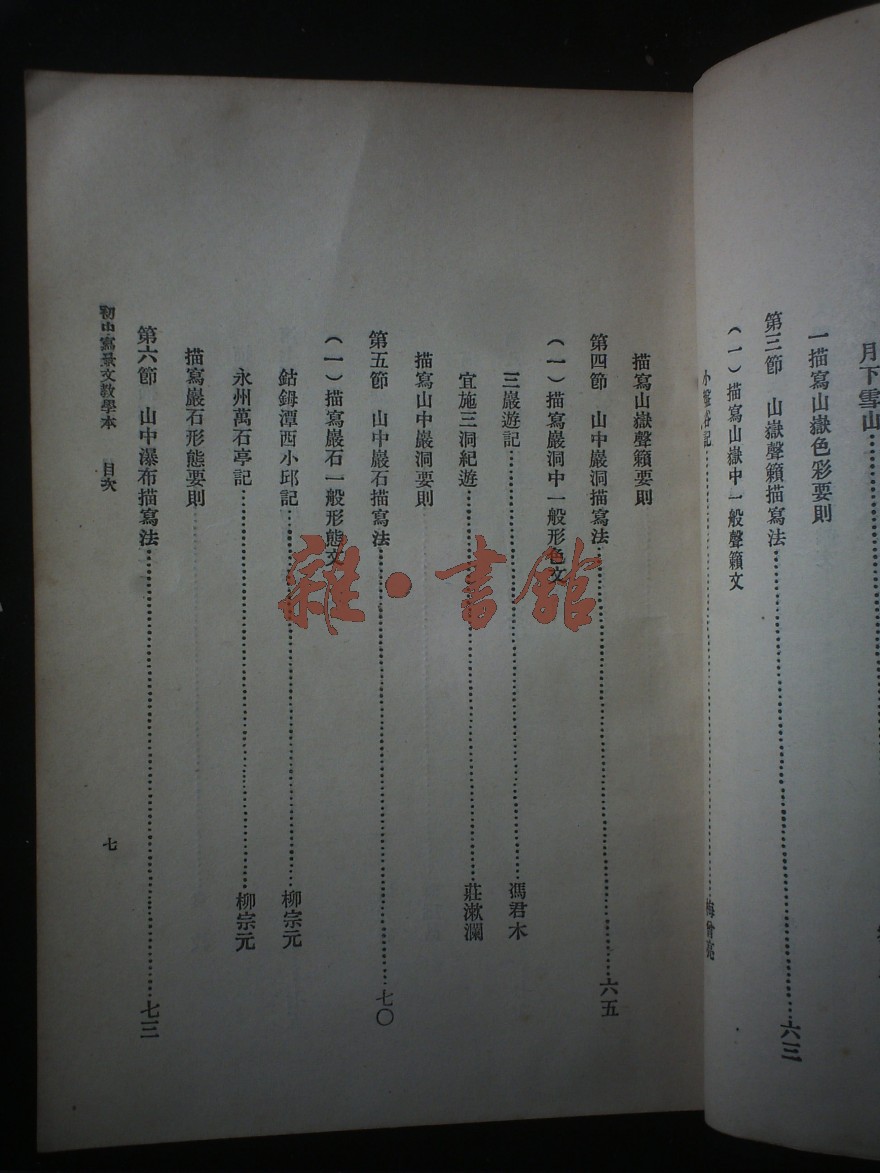 月下雪山
一描寫山嶽色彩要則
第三節　山嶽聲籟描寫法……六三
（一）描寫山嶽中一般聲籟文
小盤谷記……梅曾亮
描寫山嶽聲籟要則
第四節　山中巖洞描寫法……六五
（一）描寫巖洞中一般形色文
三巖遊記……馮君木
宜施三洞紀遊……莊漱瀾
描寫山中巖洞要則
第五節　山中巖石描寫法……七〇
（一）描寫巖石一般形態文
鈷鉧潭西小邱記……柳宗元
永州萬石亭記……柳宗元
描寫巖石形態要則
第六節　山中瀑布描寫法……七三
初中寫景文教學本　目次
七
雜·書館